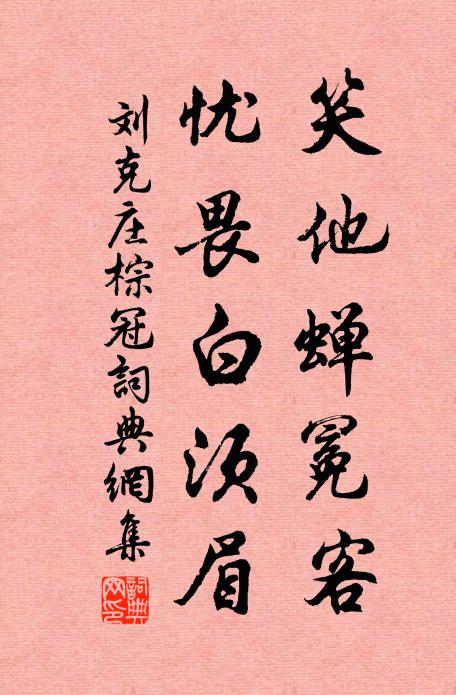 笑他蝉冕客
忧畏白须眉
刘克庄棕冠詞典網集
詞典网印